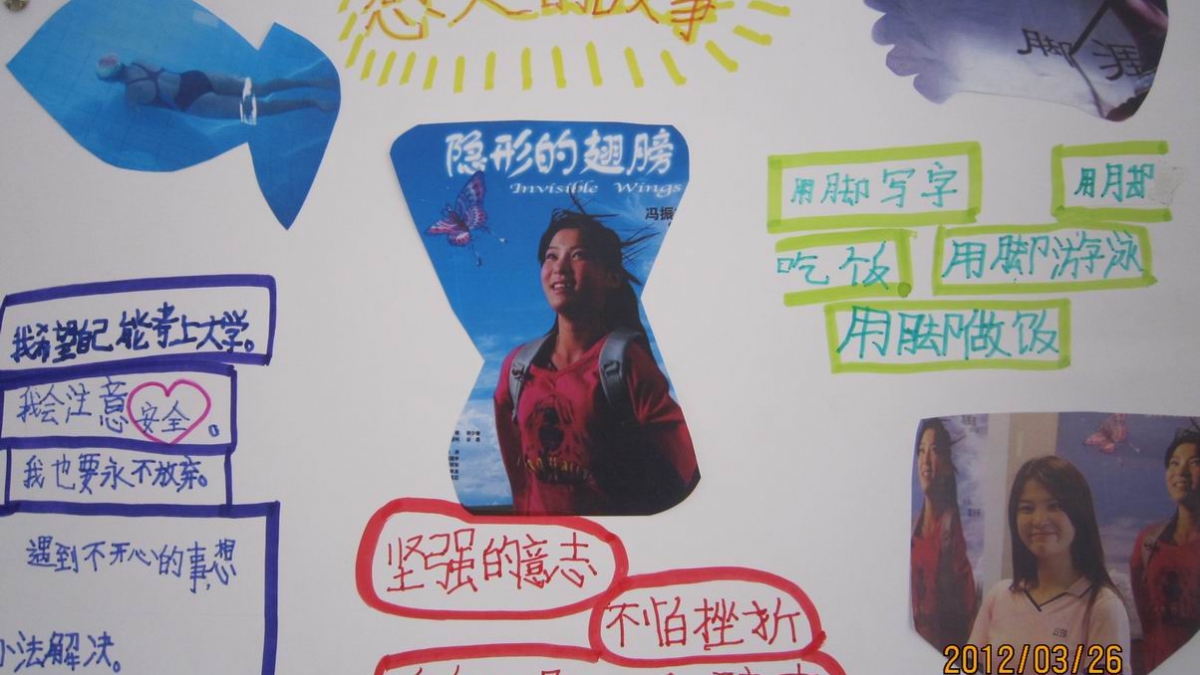 的故事
脚 涯
隐形的翅膀
Invisible Wings
冯振
用脚写字
用脚
吃饭
用脚游泳
用脚做饭
我希望自己能考上大学。
我会注意安全。
我也要永不放弃。
遇到不开心的事,想
办法解决。
坚强的意志
不怕挫折
2012/03/26